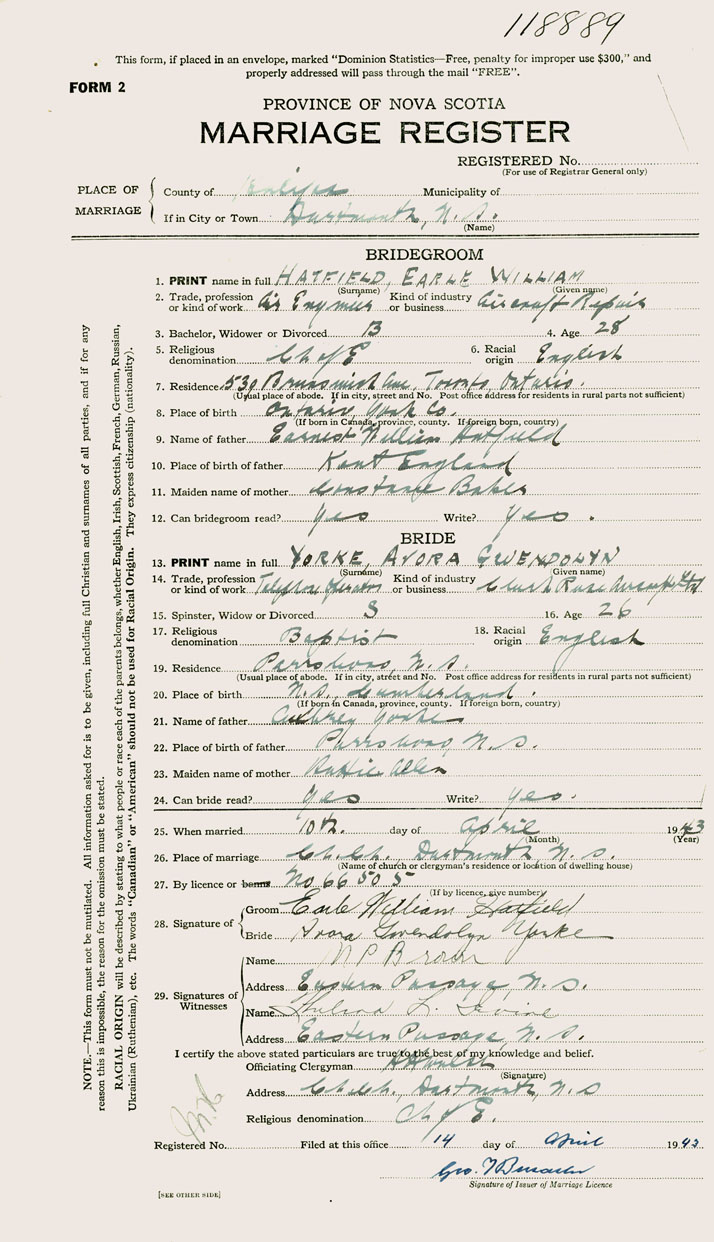 118889
This form, if placed in an envelope, marked "Dominion Statistics—Free, penalty for improper use $300," and
properly addressed will pass through the mail "FREE".
FORM 2
PROVINCE OF NOVA SCOTIA
MARRIAGE REGISTER
REGISTERED No.
(For use of Registrar General only)
PLACE OF MARRIAGE
County of Halifax Municipality of
If in City or Town Dartmouth, N. S.
(Name)
BRIDEGROOM
1. PRINT name in full HATFIELD, EARLE WILLIAM
(Surname) (Given name)
2. Trade, profession or kind of work Air Engineer Kind of industry or business Aircraft Repair
3. Bachelor, Widower or Divorced B 4. Age 28
5. Religious denomination Ch of E 6. Racial origin English
7. Residence 530 Brunswick Ave, Toronto, Ontario.
(Usual place of abode. If in city, street and No. Post office address for residents in rural parts not sufficient)
8. Place of birth Ontario, York Co.
(If born in Canada, province, county. If foreign born, country)
9. Name of father Earnest William Hatfield
10. Place of birth of father Kent England
11. Maiden name of mother Constance Baker
12. Can bridegroom read? yes Write? yes.
BRIDE
13. PRINT name in full YORKE, AVORA GWENDOLYN
(Surname) (Given name)
14. Trade, profession or kind of work Telephone Operator Kind of industry or business Clark Ruse Aircraft Ltd
15. Spinster, Widow or Divorced S 16. Age 26
17. Religious denomination Baptist 18. Racial origin English
19. Residence Parrsboro, N. S.
(Usual place of abode. If in city, street and No. Post office address for residents in rural parts not sufficient)
20. Place of birth N.S., Cumberland.
(If born in Canada, province, county. If foreign born, country)
21. Name of father Aubrey Yorke
22. Place of birth of father Parrsboro, N. S.
23. Maiden name of mother Allen
24. Can bride read? yes Write? yes.
25. When married 10th. day of April 1943
(Month) (Year)
26. Place of marriage Ch. Ch. Dartmouth, N. S.
(Name of church or clergyman's residence or location of dwelling house)
27. By licence or banns No 66505
(If by licence, give number)
28. Signature of
Groom Earle William Hatfield
Bride Avora Gwendolyn Yorke
29. Signatures of Witnesses
Name Brown
Address Eastern Passage, N. S.
Name Thelma L. Levine
Address Eastern Passage, N. S.
I certify the above stated particulars are true to the best of my knowledge and belief.
Officiating Clergyman
(Signature)
Address Ch. Ch., Dartmouth, N. S
Religious denomination Ch of E.
Registered No. Filed at this office 14 day of April 1943
Geo.
Signature of Issuer of Marriage Licence
[SEE OTHER SIDE]
NOTE.—This form must not be mutilated. All information asked for is to be given, including full Christian and surnames of all parties, and if for any
reason this is impossible, the reason for the omission must be stated.
RACIAL ORIGIN will be described by stating to what people or race each of the parents belongs, whether English, Irish, Scottish, French, German, Russian,
Ukrainian (Ruthenian), etc. The words "Canadian" or "American" should not be used for Racial Origin. They express citizenship (nationality).